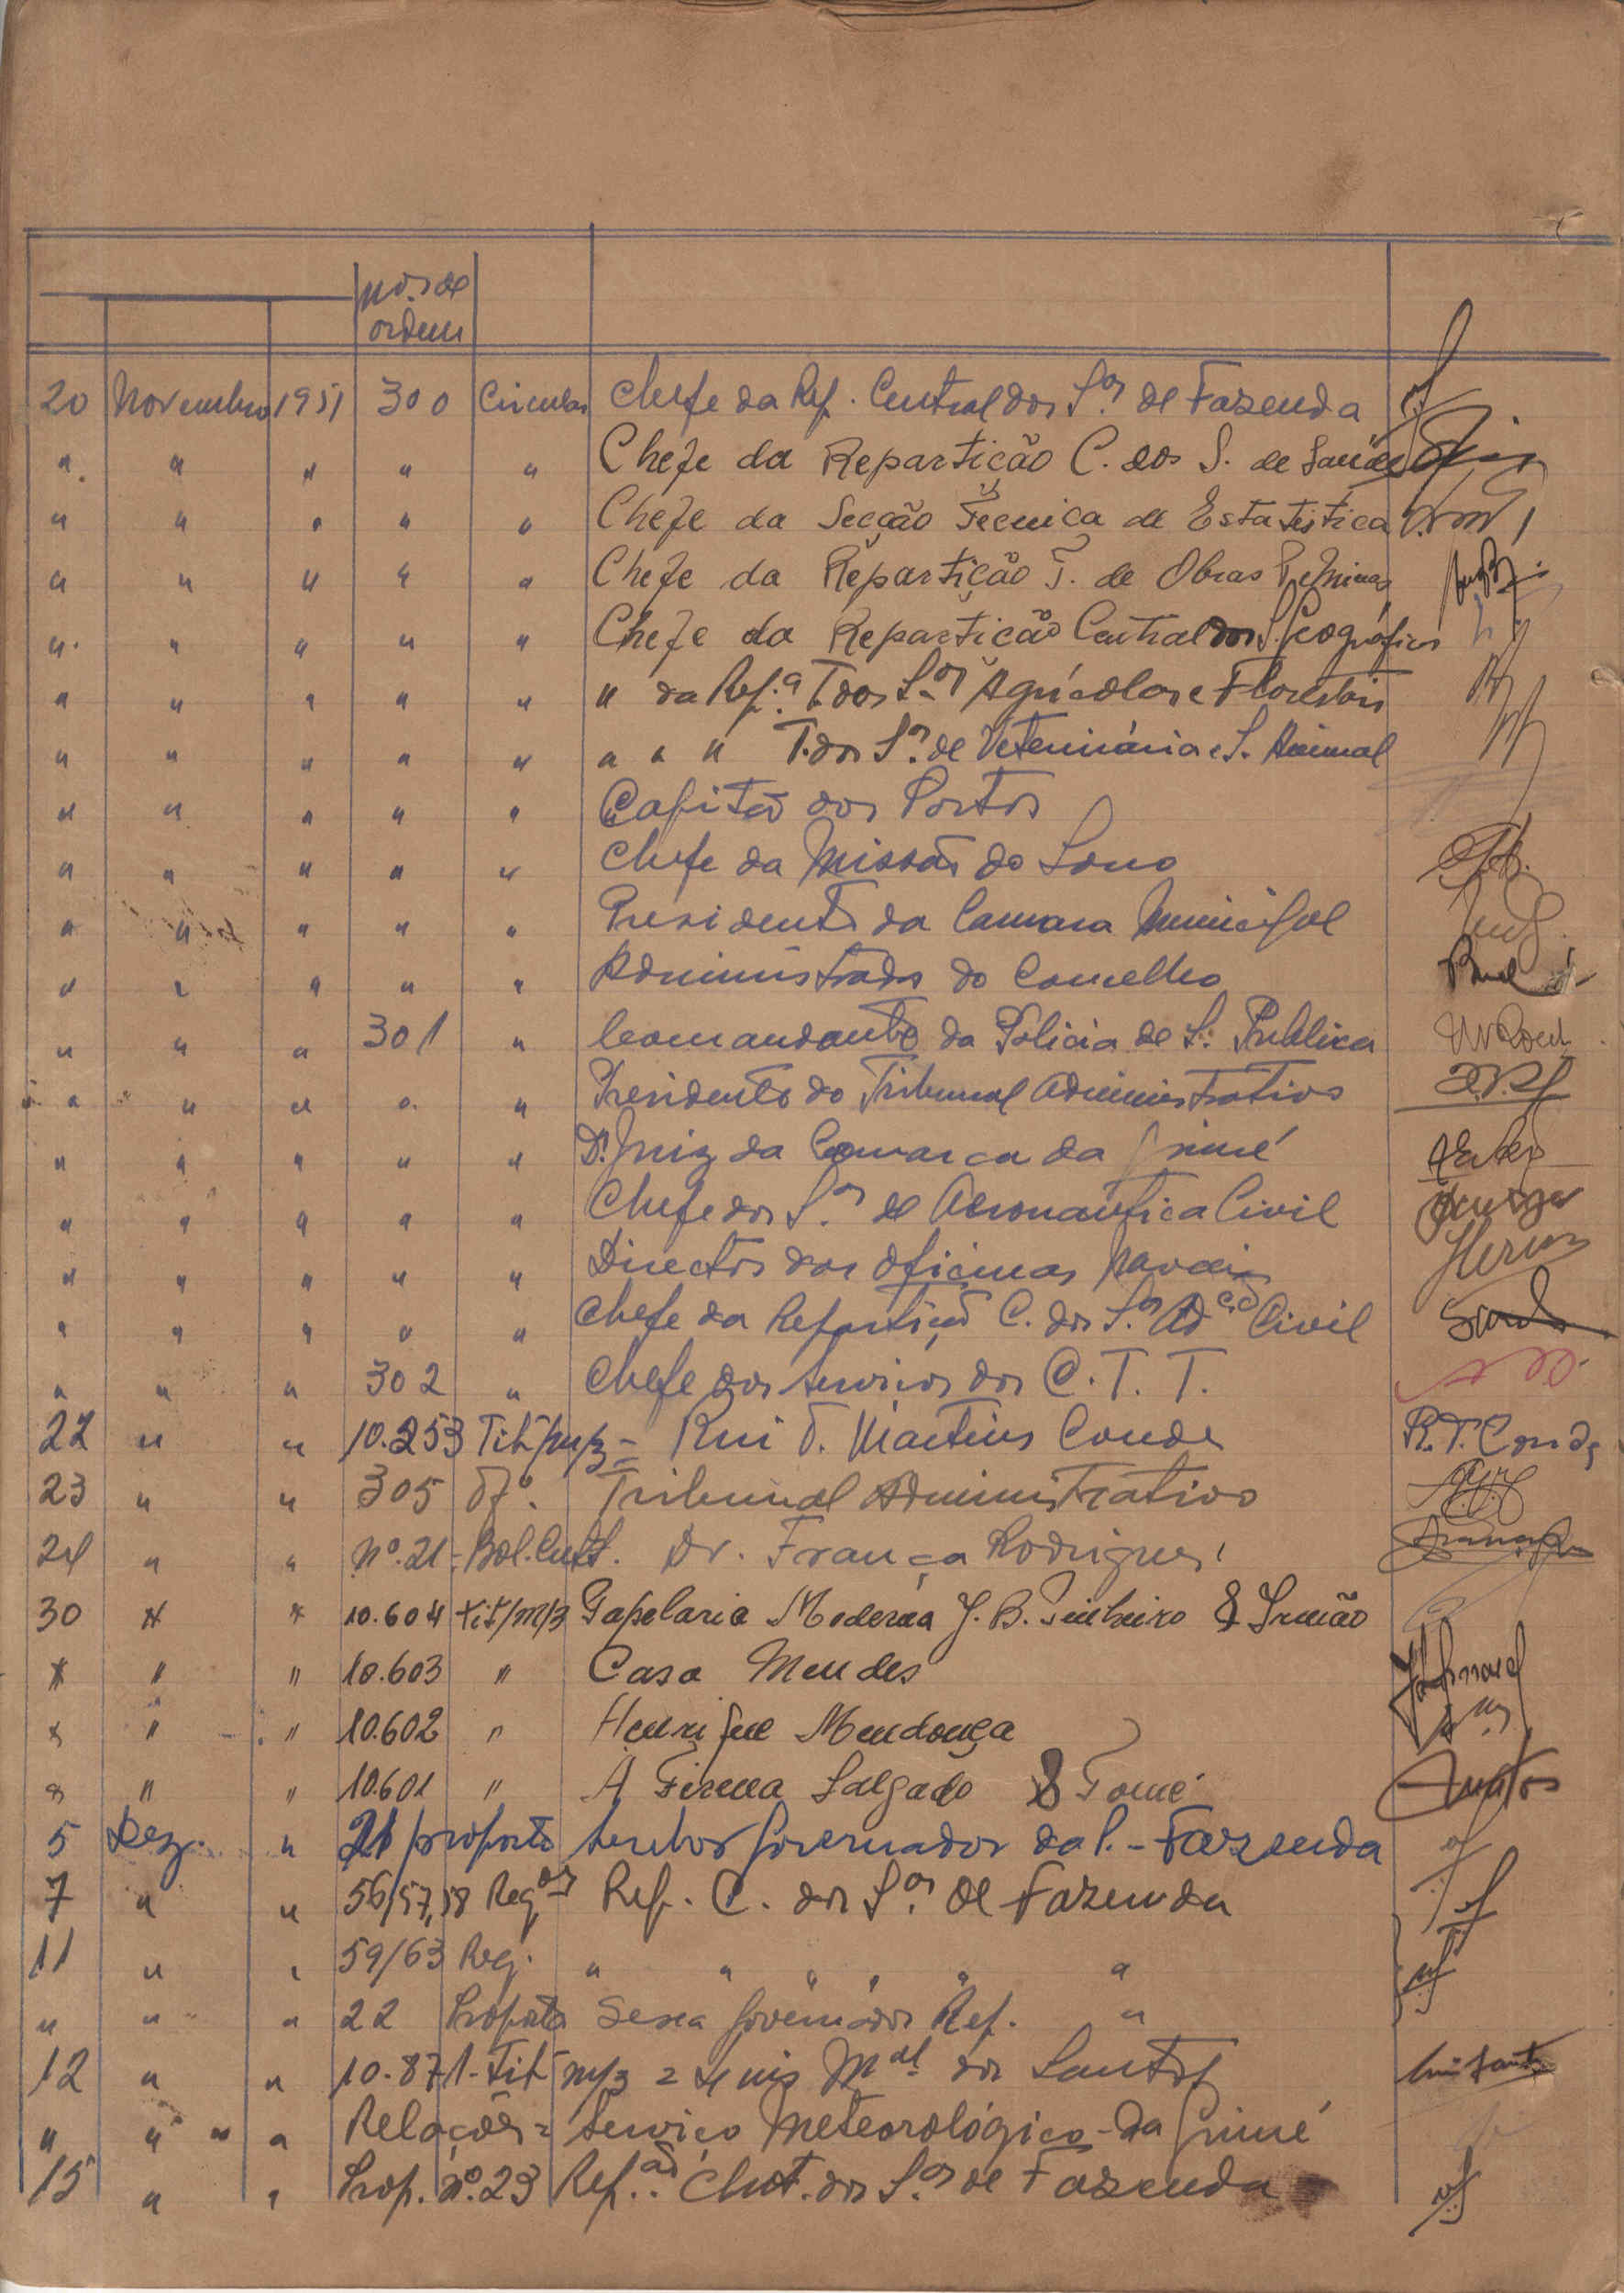 Nos. de
ordem
20 Novembro 1951 300 Circular Chefe da Rep. Central dos S.os de Fazenda
" " " " " Chefe da Repartição C. dos S. de Saúde
" " " " " Chefe da Secção Técnica de Estatística
" " " " " Chefe da Repartição T. de Obras P. e Minas
" " " " " Chefe da Repartição Central dos S. Geográficos
" " " " " " da Rep.a T. dos S.os Agrícolas e Florestais
" " " " " " " " T. dos S.os de Veterinária e S. Animal
" " " " " Capitão dos Portos
" " " " " Chefe da Missão do Sono
" " " " " Presidente da Camara Municipal
" " " " " Administrador do Concelho
" " " 301 " Comandante da Policia de S. Publica
" " " " " Presidente do Tribunal Administrativo
" " " " " Dr. Juiz da Comarca da Guiné
" " " " " Chefe dos S.os de Aeronautica Civil
" " " " " Director das Oficinas Navais
" " " " " Chefe da Repartição C. dos S.os Ad.cão Civil
" " " 302 " Chefe dos Serviços dos C. T. T.
22 " " 10.253 Tit/m/3 = Rui T. Martins Conde R. T. Conde
23 " " 305 Of.º Tribunal Administrativo
24 " " Nº. 21 - Bol. Cult. Dr. França Rodrigues
30 " " 10.604 tit/m/3 Papelaria Moderna J. B. Pinheiro & Irmão
" " " 10.603 " Casa Mendes
" " " 10.602 " Henrique Mendonça
" " " 10.601 " A Firma Salgado & Tomé
5 Dez. " 21 proposta Senhor Governador da P. - Fazenda
7 " " 56/57,58 Reqos Rep. C. dos S.os de Fazenda
11 " " 59/63 Req. " " " " " "
" " " 22 Proposta Sexa Governador Rep. "
12 " " 10.871 - Tit m/3 = Luis Mal dos Santos
" " " Relações = Serviço Meteorológico - da Guiné
15 " " Prop. nº. 23 Rep.ão Cent. dos S.os de Fazenda